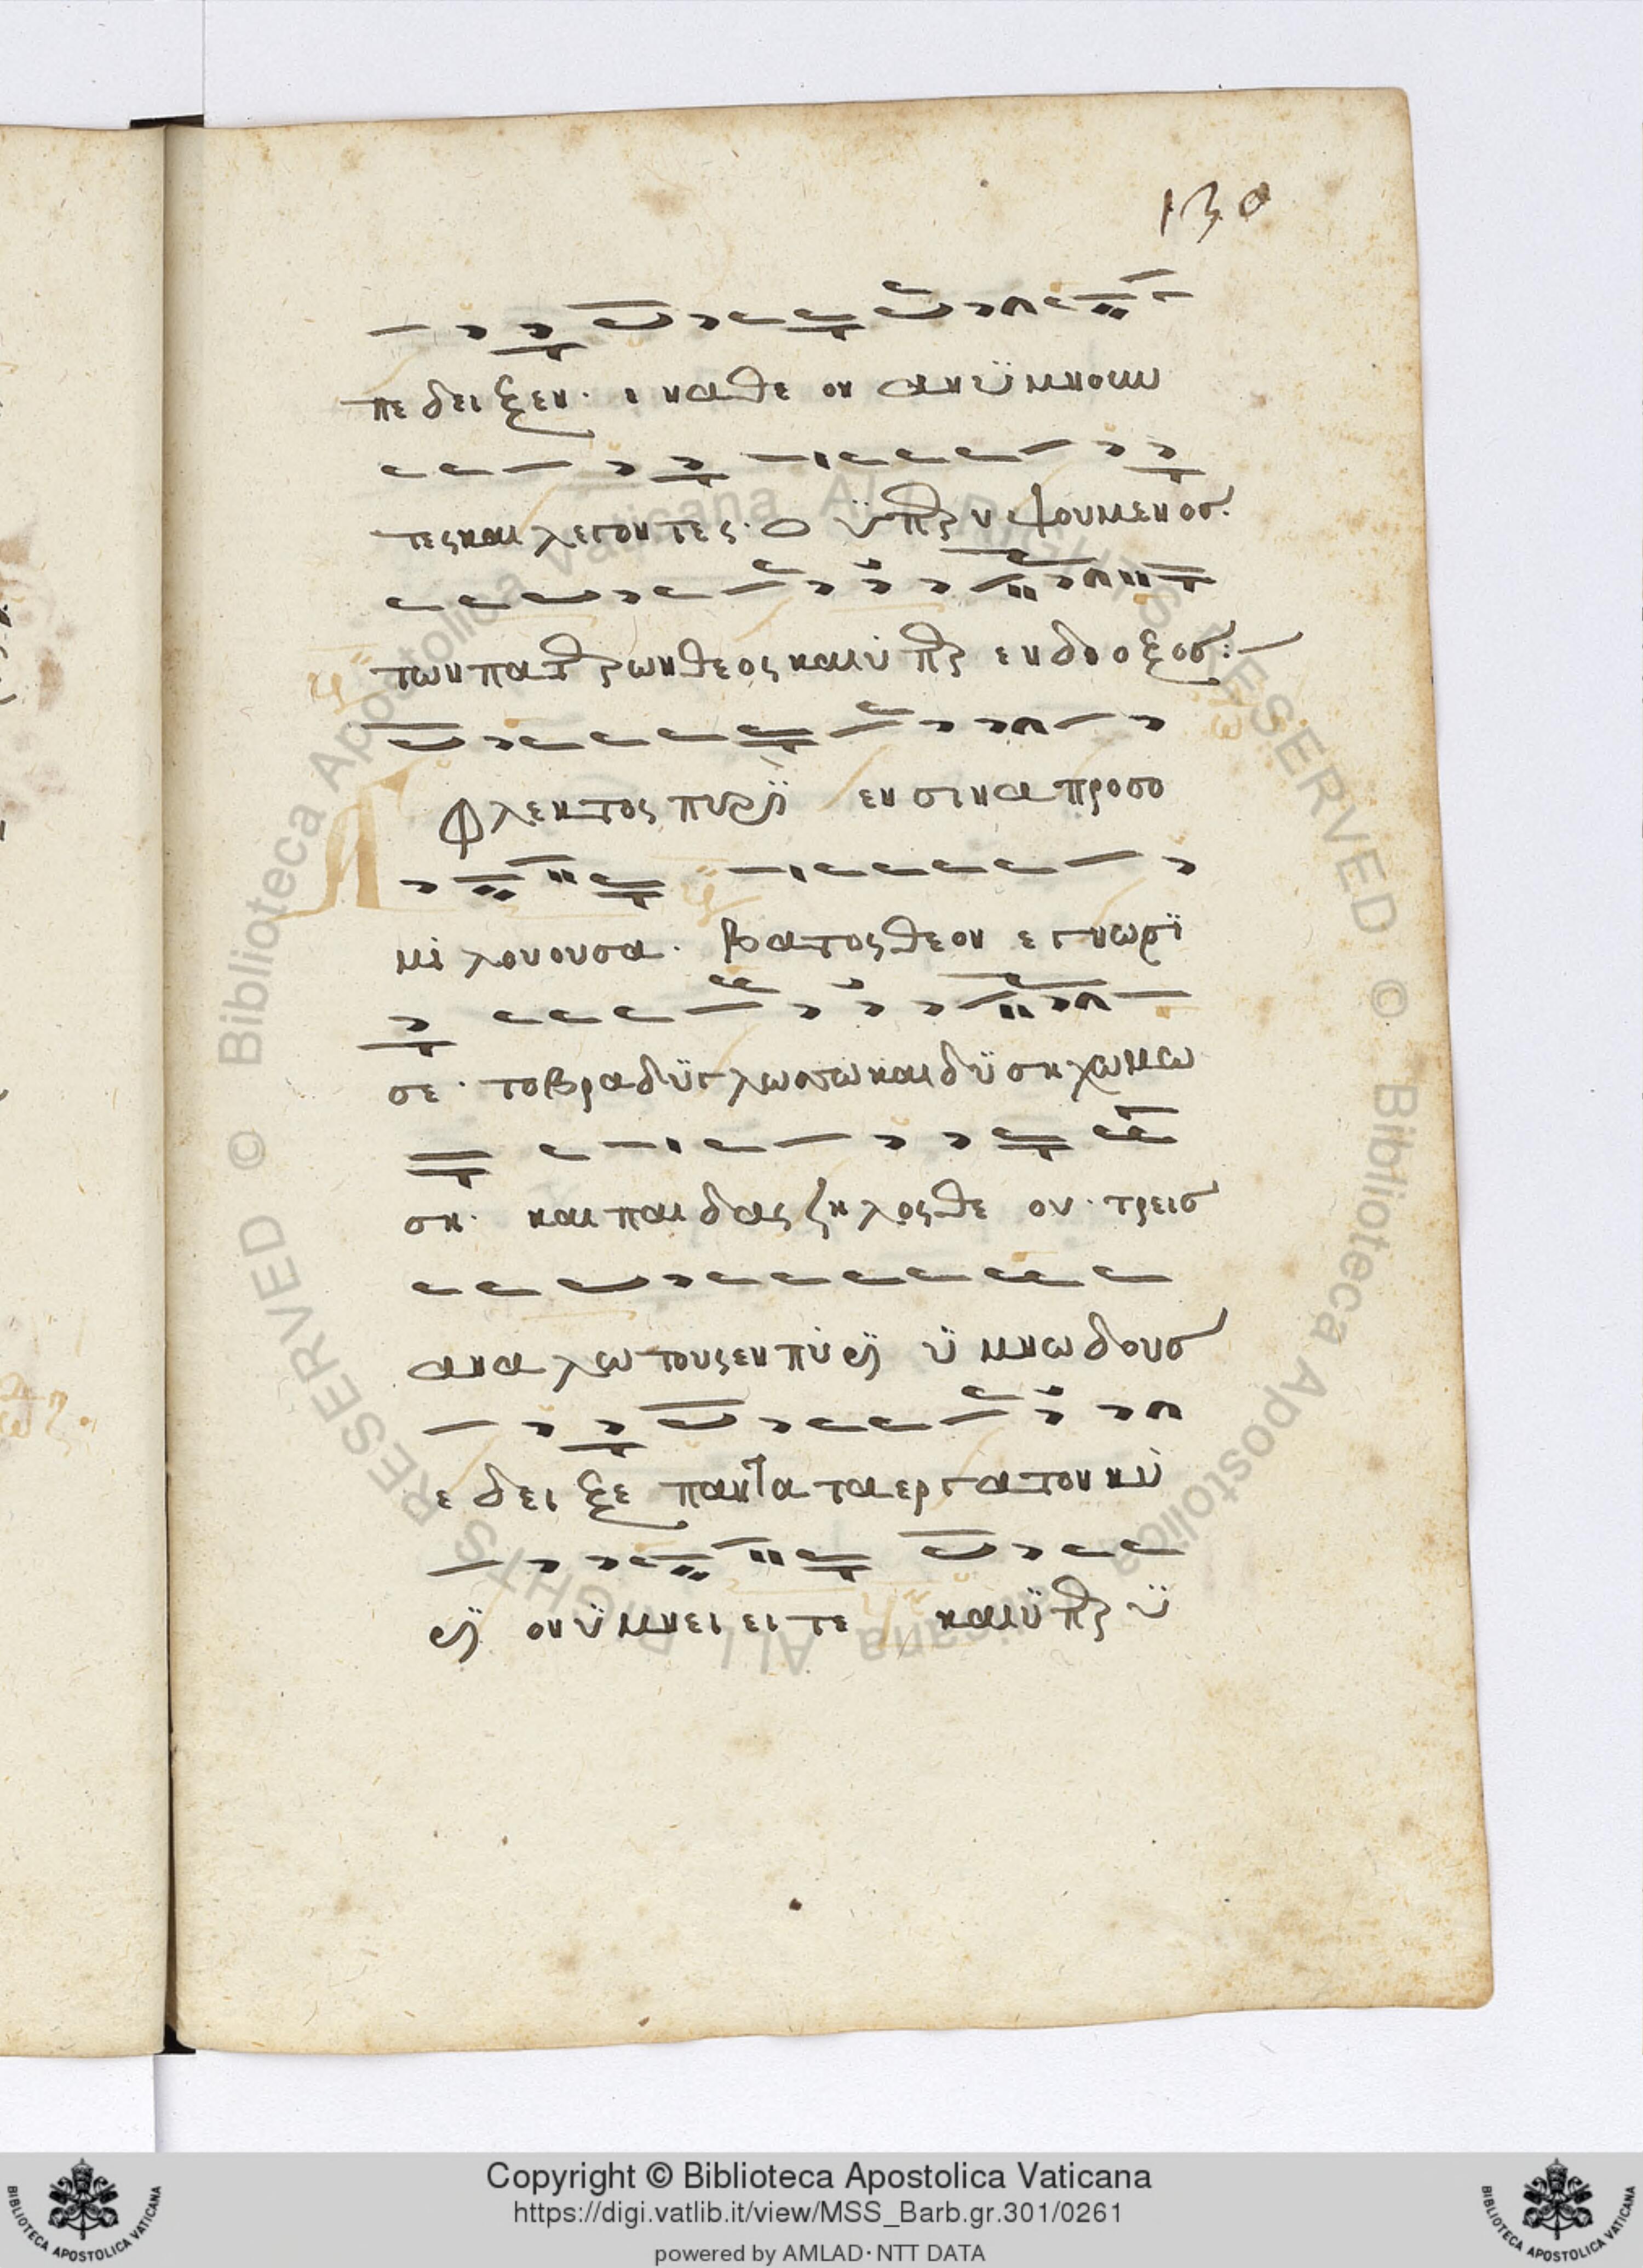 130
πεδειξεν· ικαθεον ανϋμνουν
τες και λεγοντες· ο ϋπερυψουμενος·
των πατερων θεος και υπερενδοοξος:
Αφλεκτος πυρϊ εν σινα προσο
μιλουουσα· βατος θεον εγνωρϊ
σε· το βραδϋγλωσσω και δϋσηχω μω
ση· και παιδας ζηλος θεου· τρεισ
αναλωτους εν πυρϊ ϋμνωδουσ
εδειξε παντα τα εργα τον κυ
ρϊον ϋμνειειτε και ϋπερϋ
Copyright © Biblioteca Apostolica Vaticana
https://digi.vatlib.it/view/MSS_Barb.gr.301/0261
powered by AMLAD · NTT DATA
BIBLIOTECA APOSTOLICA VATICANA
BIBLIOTECA APOSTOLICA VATICANA
Biblioteca Apostolica Vaticana ALL RIGHTS RESERVED ©
Biblioteca Apostolica Vaticana ALL RIGHTS RESERVED ©